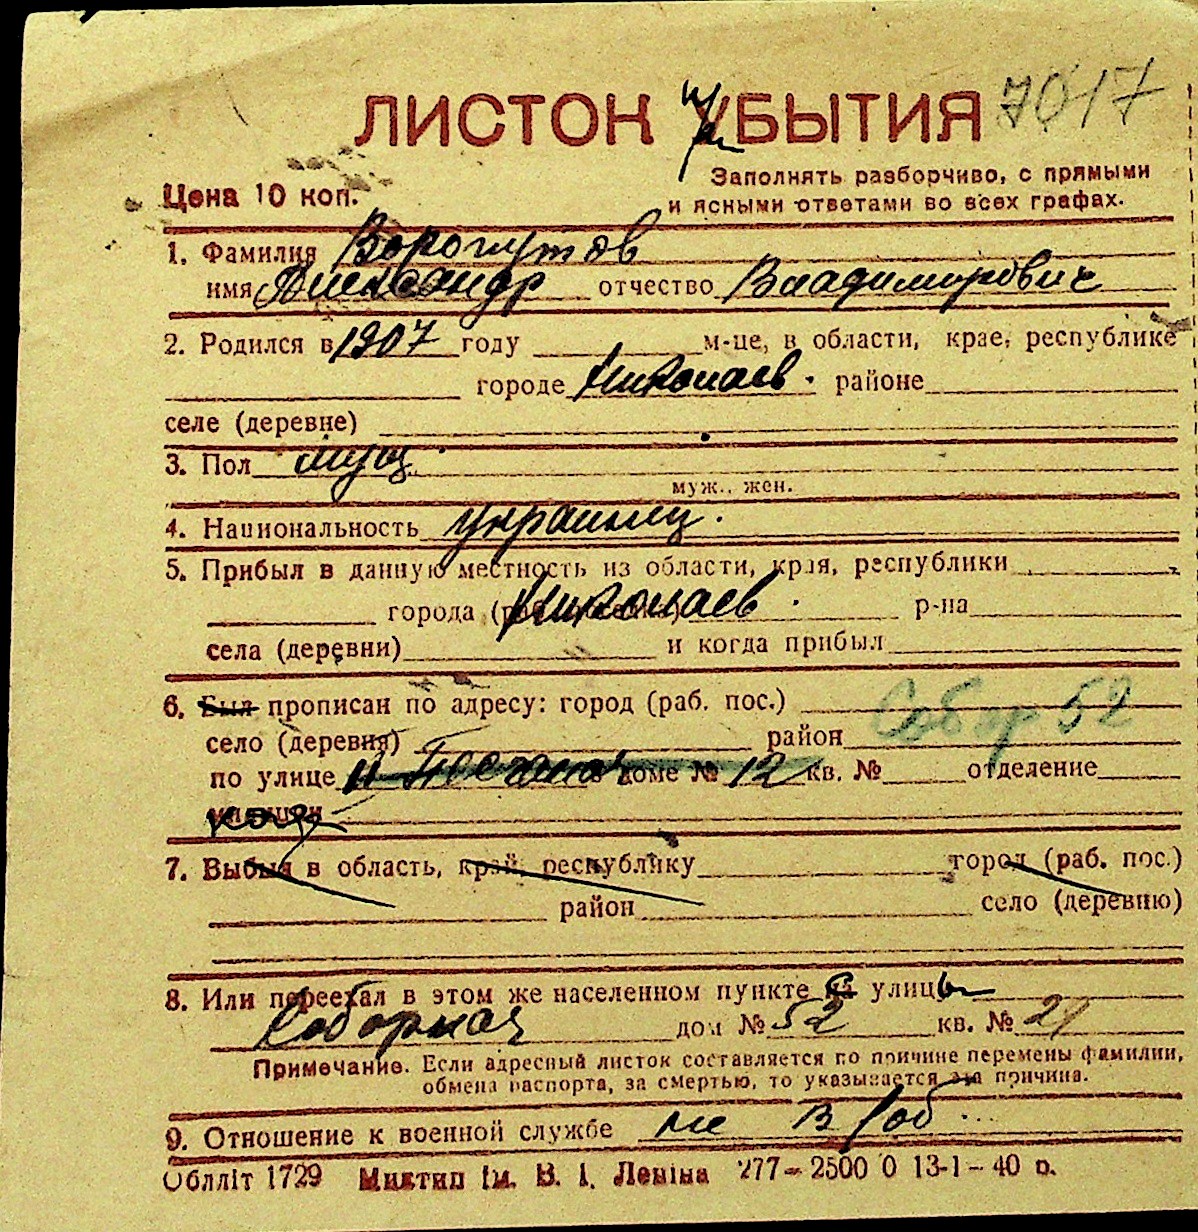 ЛИСТОК УБЫТИЯ 7017
Цена 10 коп.
Заполнять разборчиво, с прямыми
и ясными ответами во всех графах.
1. Фамилия
имя Александр отчество Владимирович
2. Родился в 1907 году м-це, в области, крае, республике
городе Николаев. районе
селе (деревне)
3. Пол мущ.
муж., жен.
4. Национальность украинец.
5. Прибыл в данную местность из области, края, республики
города (раб. Николаев. р-на
села (деревни) и когда прибыл
6. Был прописан по адресу: город (раб. пос.)
Собор 52
село (деревня) район
по улице доме № 12 кв. № отделение
милиции
7. Выбыл в область, край, республику город (раб. пос.)
район село (деревню)
8. Или переехал в этом же населенном пункте улицы
Соборная дом № 52 кв. № 21
Примечание. Если адресный листок составляется по причине перемены фамилии,
обмена паспорта, за смертью, то указывается эта причина.
9. Отношение к военной службе не
Обллiт 1729 Миктип iм. В. I. Ленiна 277–2500 0 13-1–40 р.